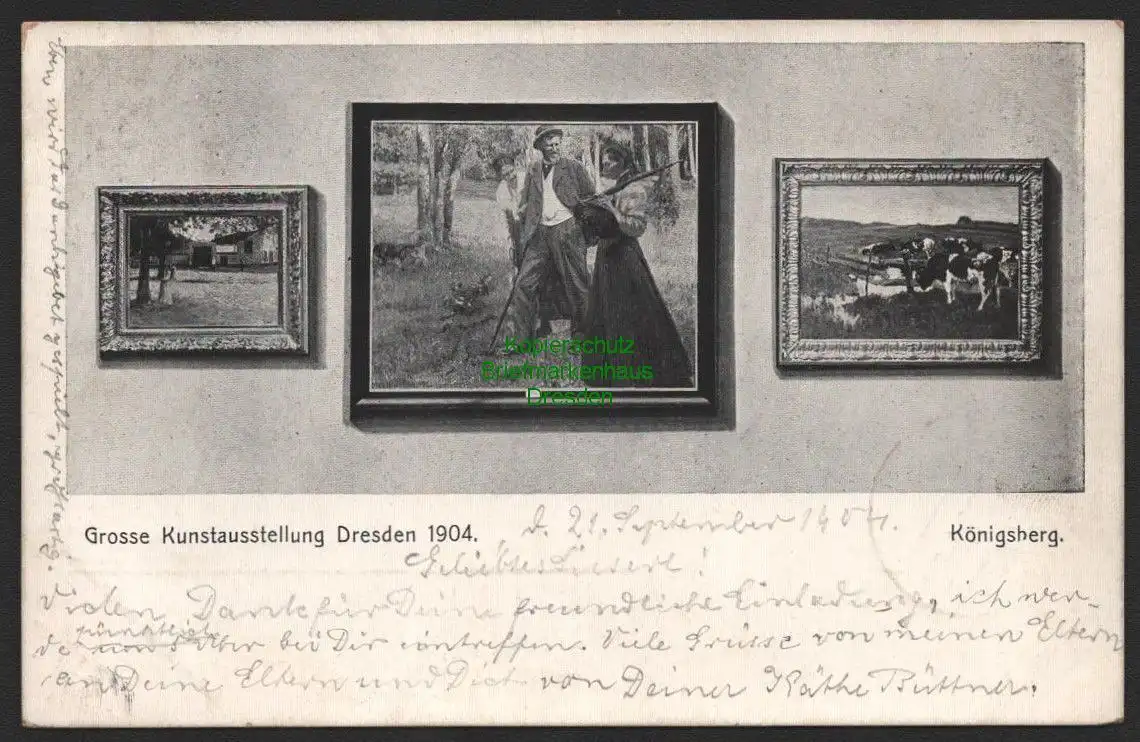 Kopierschutz
Briefmarkenhaus
Dresden
Grosse Kunstausstellung Dresden 1904.
Königsberg.
d. 21. September 1904.
Geliebtes Lieserl!
Vielen Dank für Deine freundliche Einladung, ich wer-
de pünktlich Uhr bei Dir eintreffen. Viele Grüsse von meinen Eltern
an Deine Eltern und Dich von Deiner Käthe Büttner.